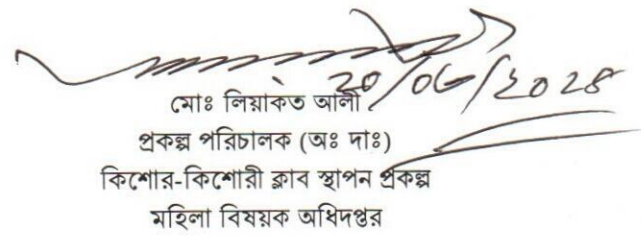 ২০/০৬/২০২৪
মোঃ লিয়াকত আলী
প্রকল্প পরিচালক (অঃ দাঃ)
কিশোর-কিশোরী ক্লাব স্থাপন প্রকল্প
মহিলা বিষয়ক অধিদপ্তর